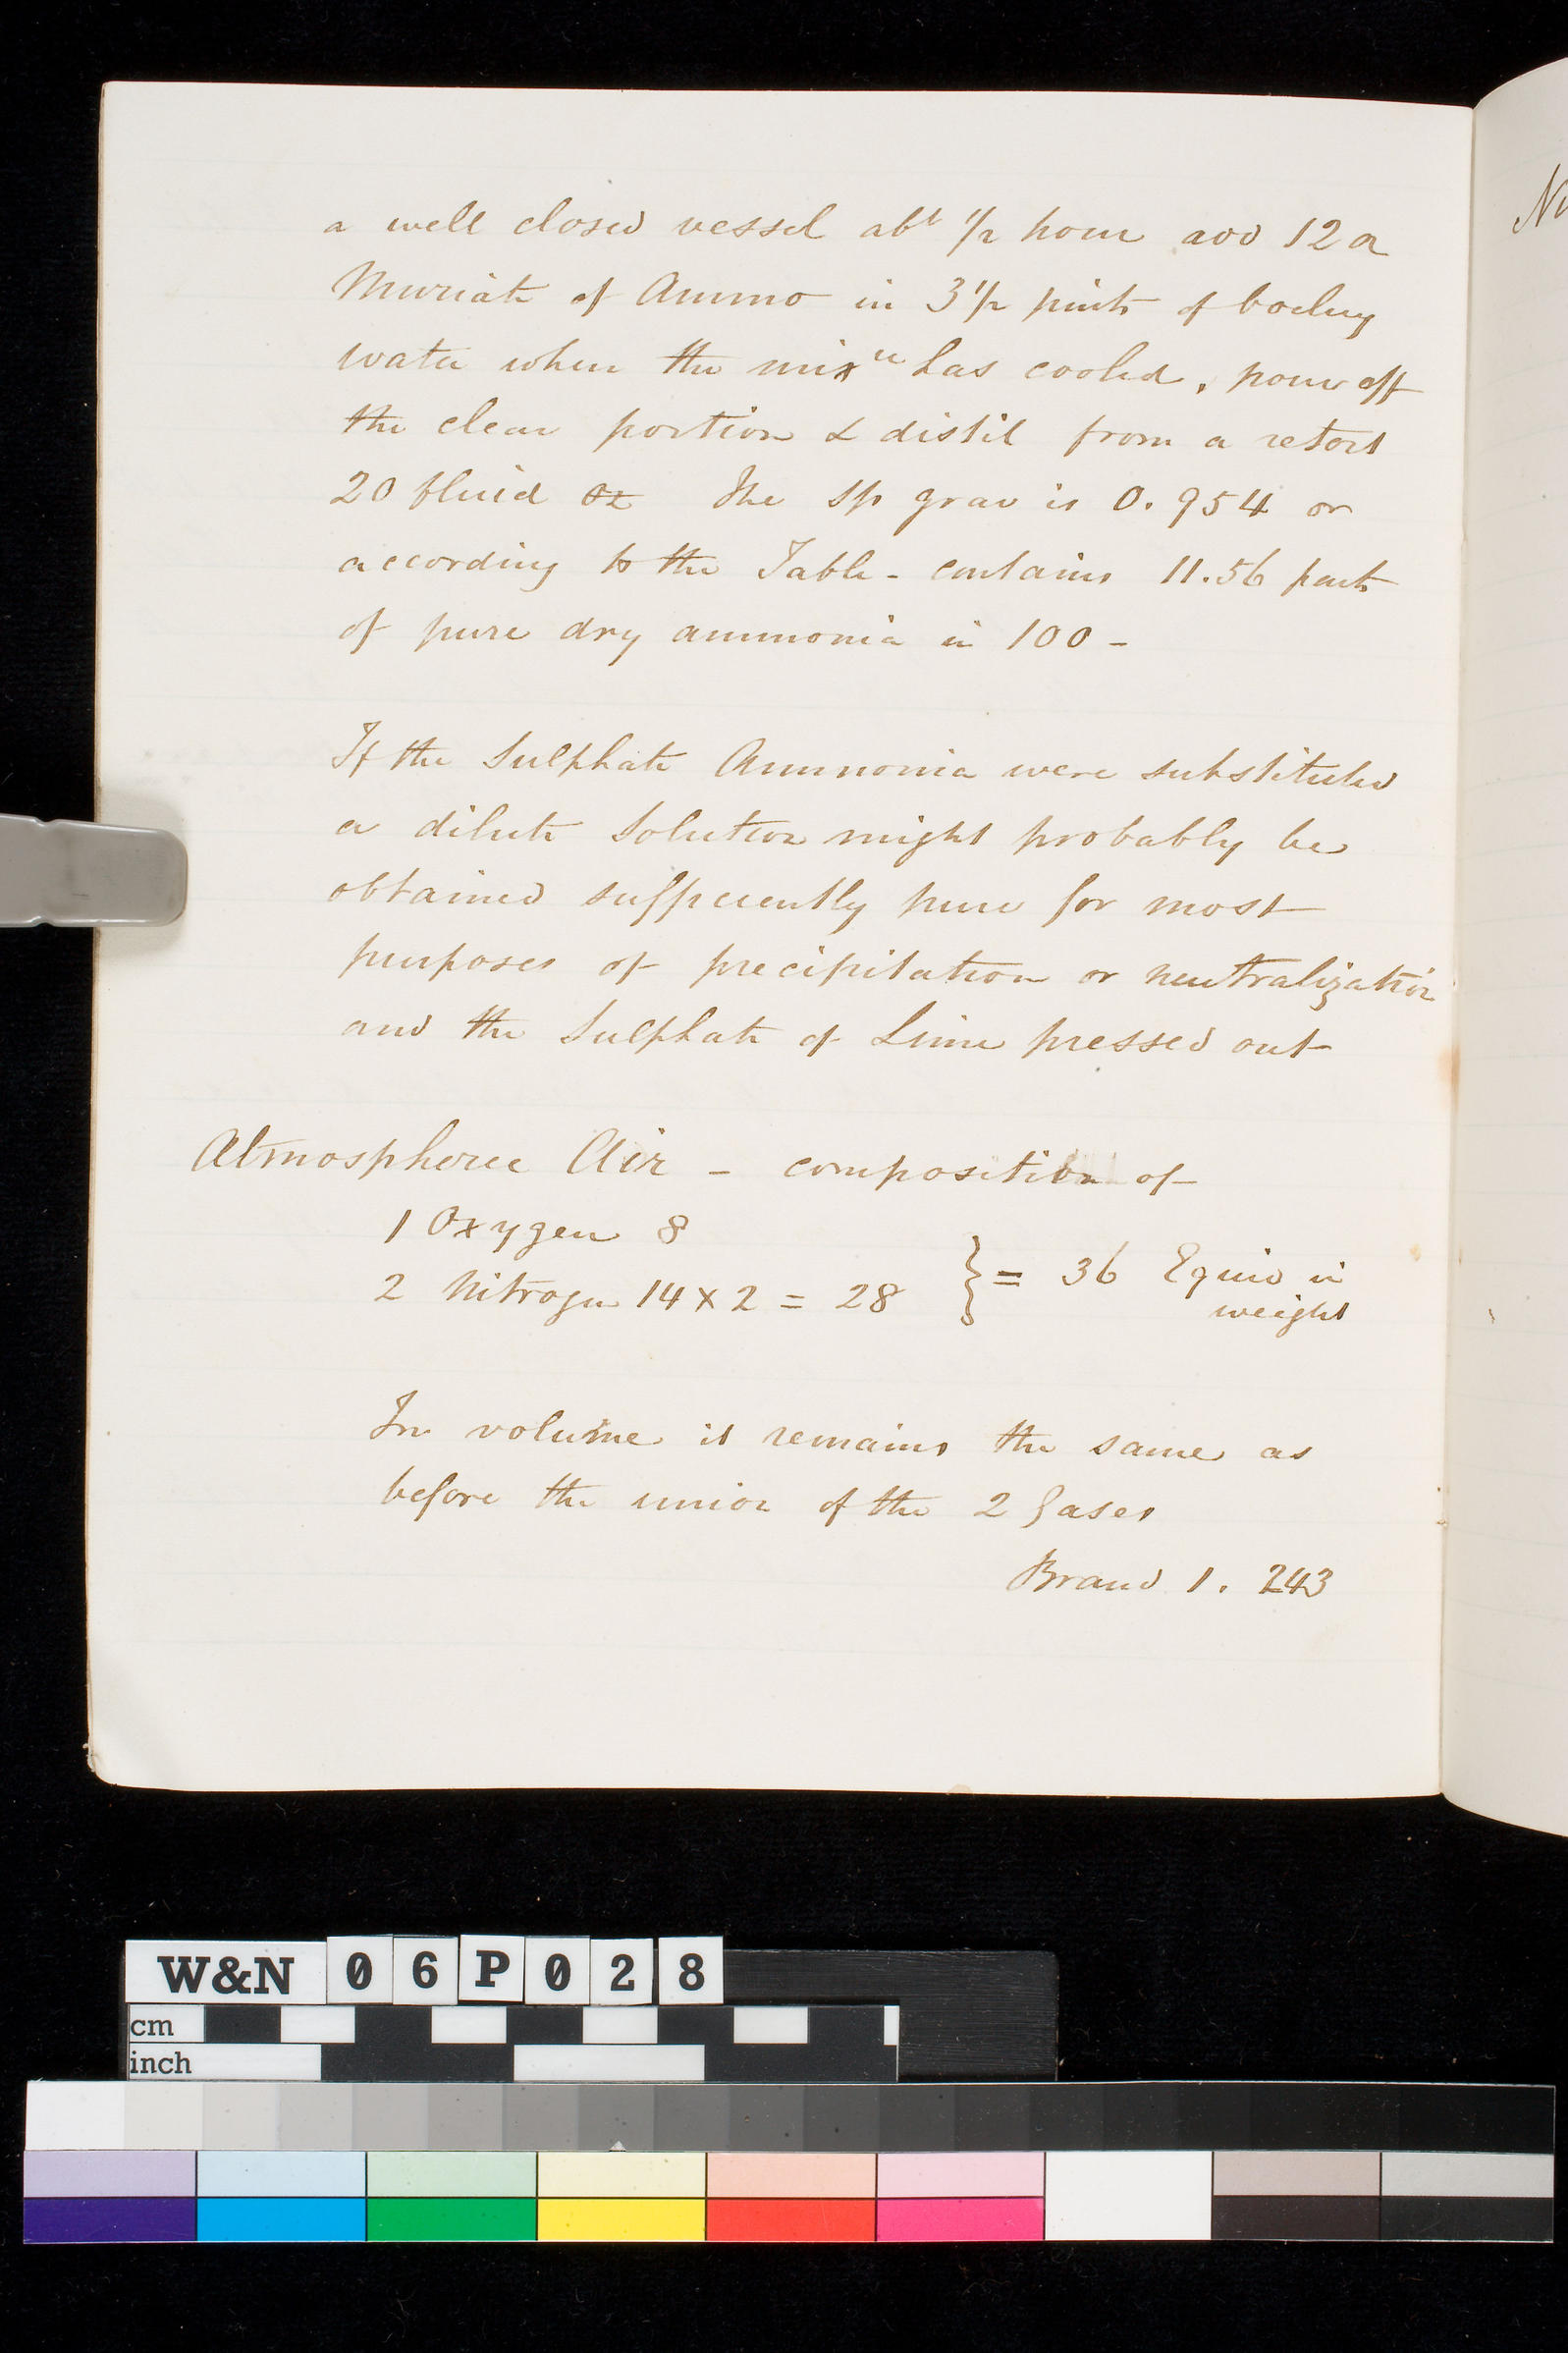 a well closed vessel abt 1/2 hour add 12 oz
Muriate of Ammo in 3 1/2 pints of boiling
water when the mixre has cooled, pour off
the clear portion & distil from a retort
20 fluid oz The Sp grav is 0.954 or
according to the Table - contains 11.56 parts
of pure dry ammonia in 100 -
If the Sulphate Ammonia were substituted
a dilute Solution might probably be
obtained sufficiently pure for most
purposes of precipitation or neutralization
and the Sulphate of Lime pressed out
Atmospheric Air - composition of
1 Oxygen 8
2 Nitrogen 14 x 2 = 28 } = 36 Equiv in
weight
In volume it remains the same as
before the union of the 2 Gases
Brand 1. 243
W&N 06P028
cm
inch